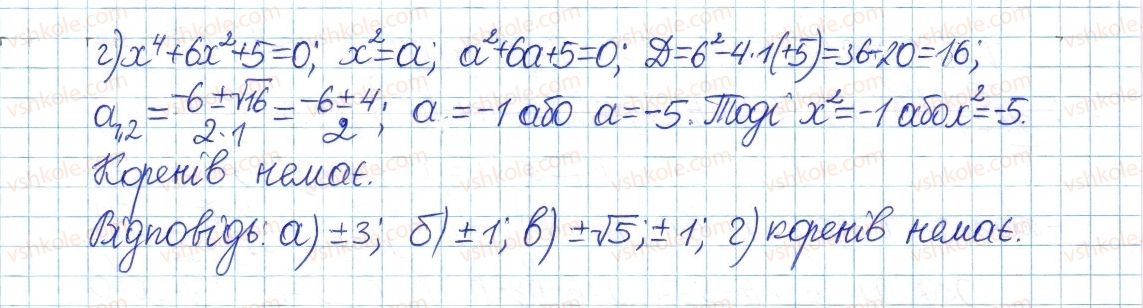 г) x⁴+6x²+5=0; x²=a; a²+6a+5=0; Д=6²-4·1(+5)=36-20=16;
a₁,₂ = (-6±√16)/(2·1) = (-6±4)/2; a = -1 або a = -5. Тоді x²=-1 або x²=-5.
Коренів немає.
Відповідь: а) ±3; б) ±1; в) ±√5; ±1; г) коренів немає.